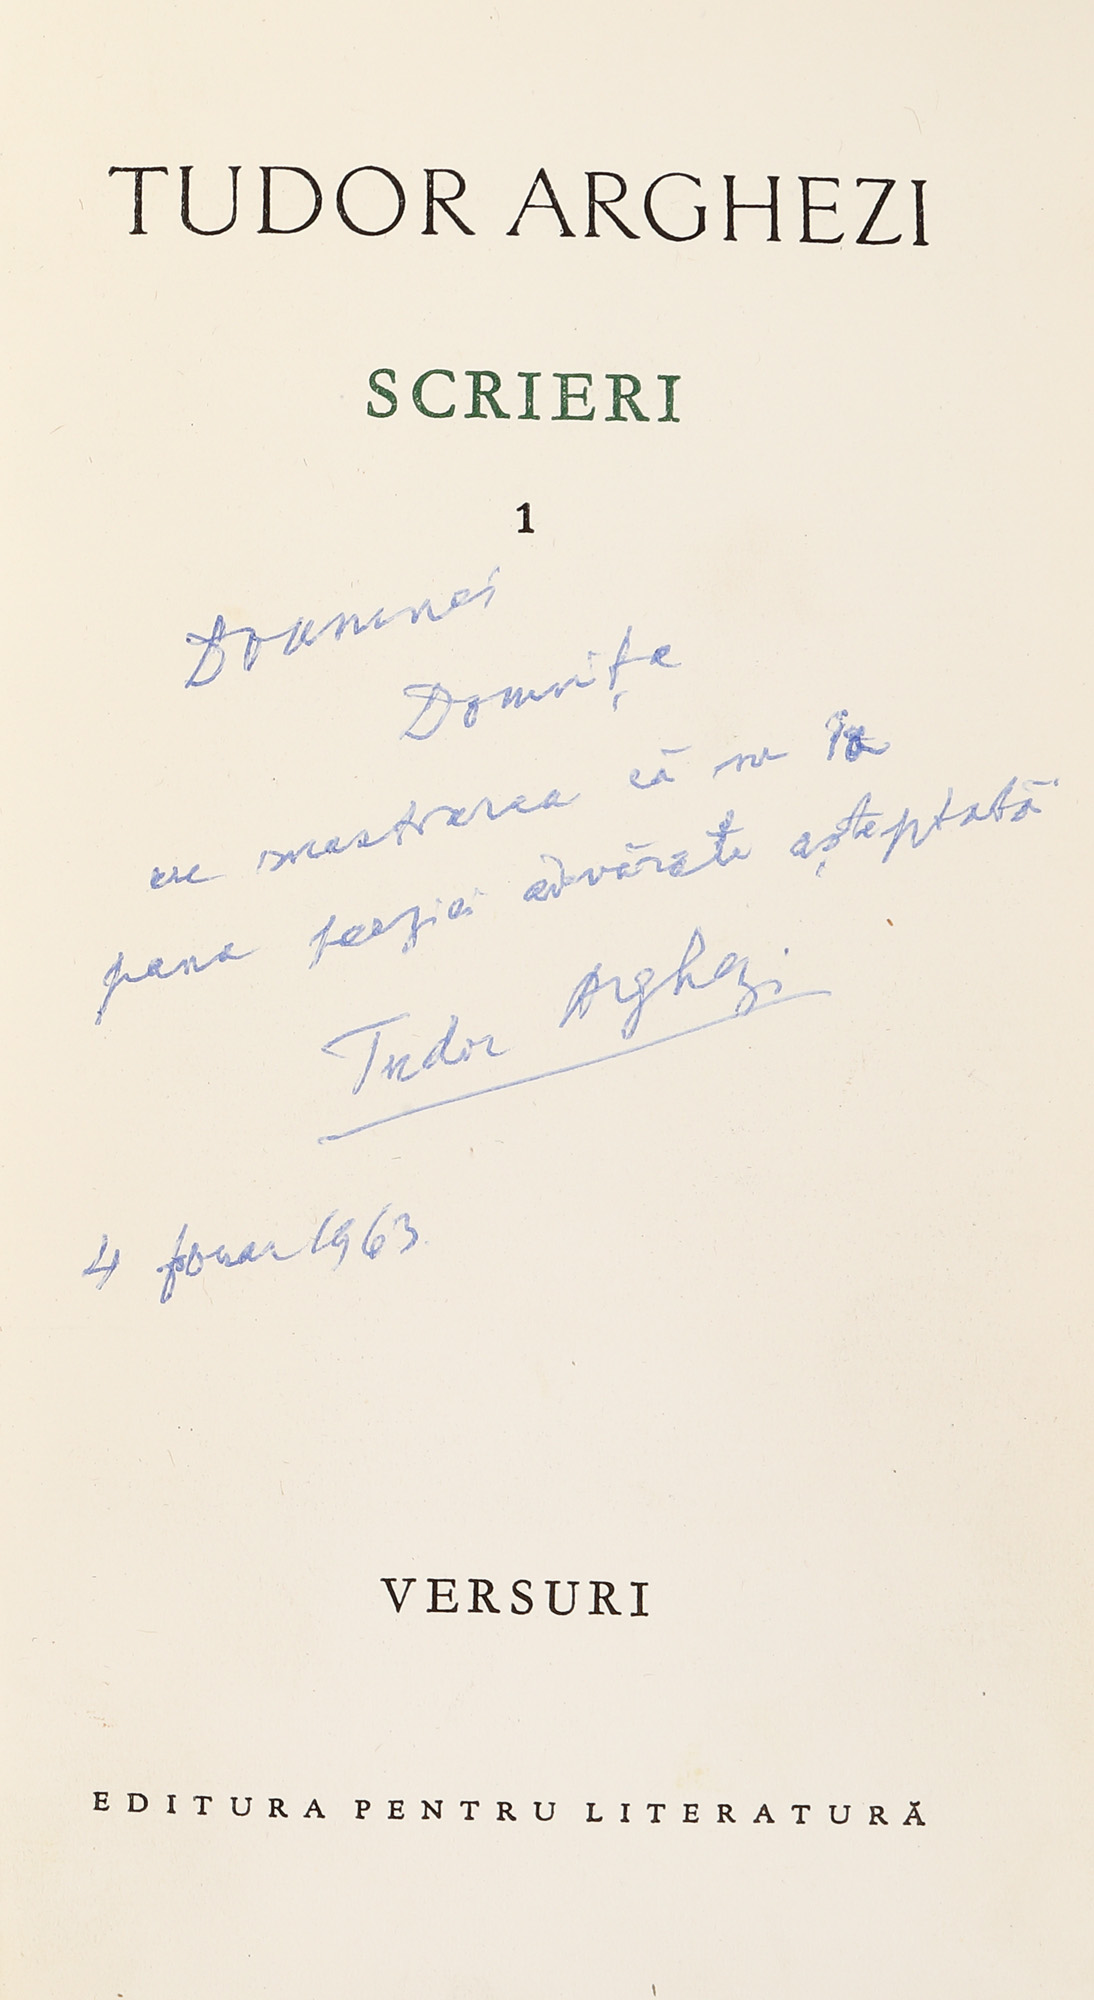 TUDOR ARGHEZI
SCRIERI
1
Doamnei
Domnița
cu mustrarea că nu ia
pana poeziei adevărate așteptată
Tudor Arghezi
4 1963
VERSURI
EDITURA PENTRU LITERATURĂ